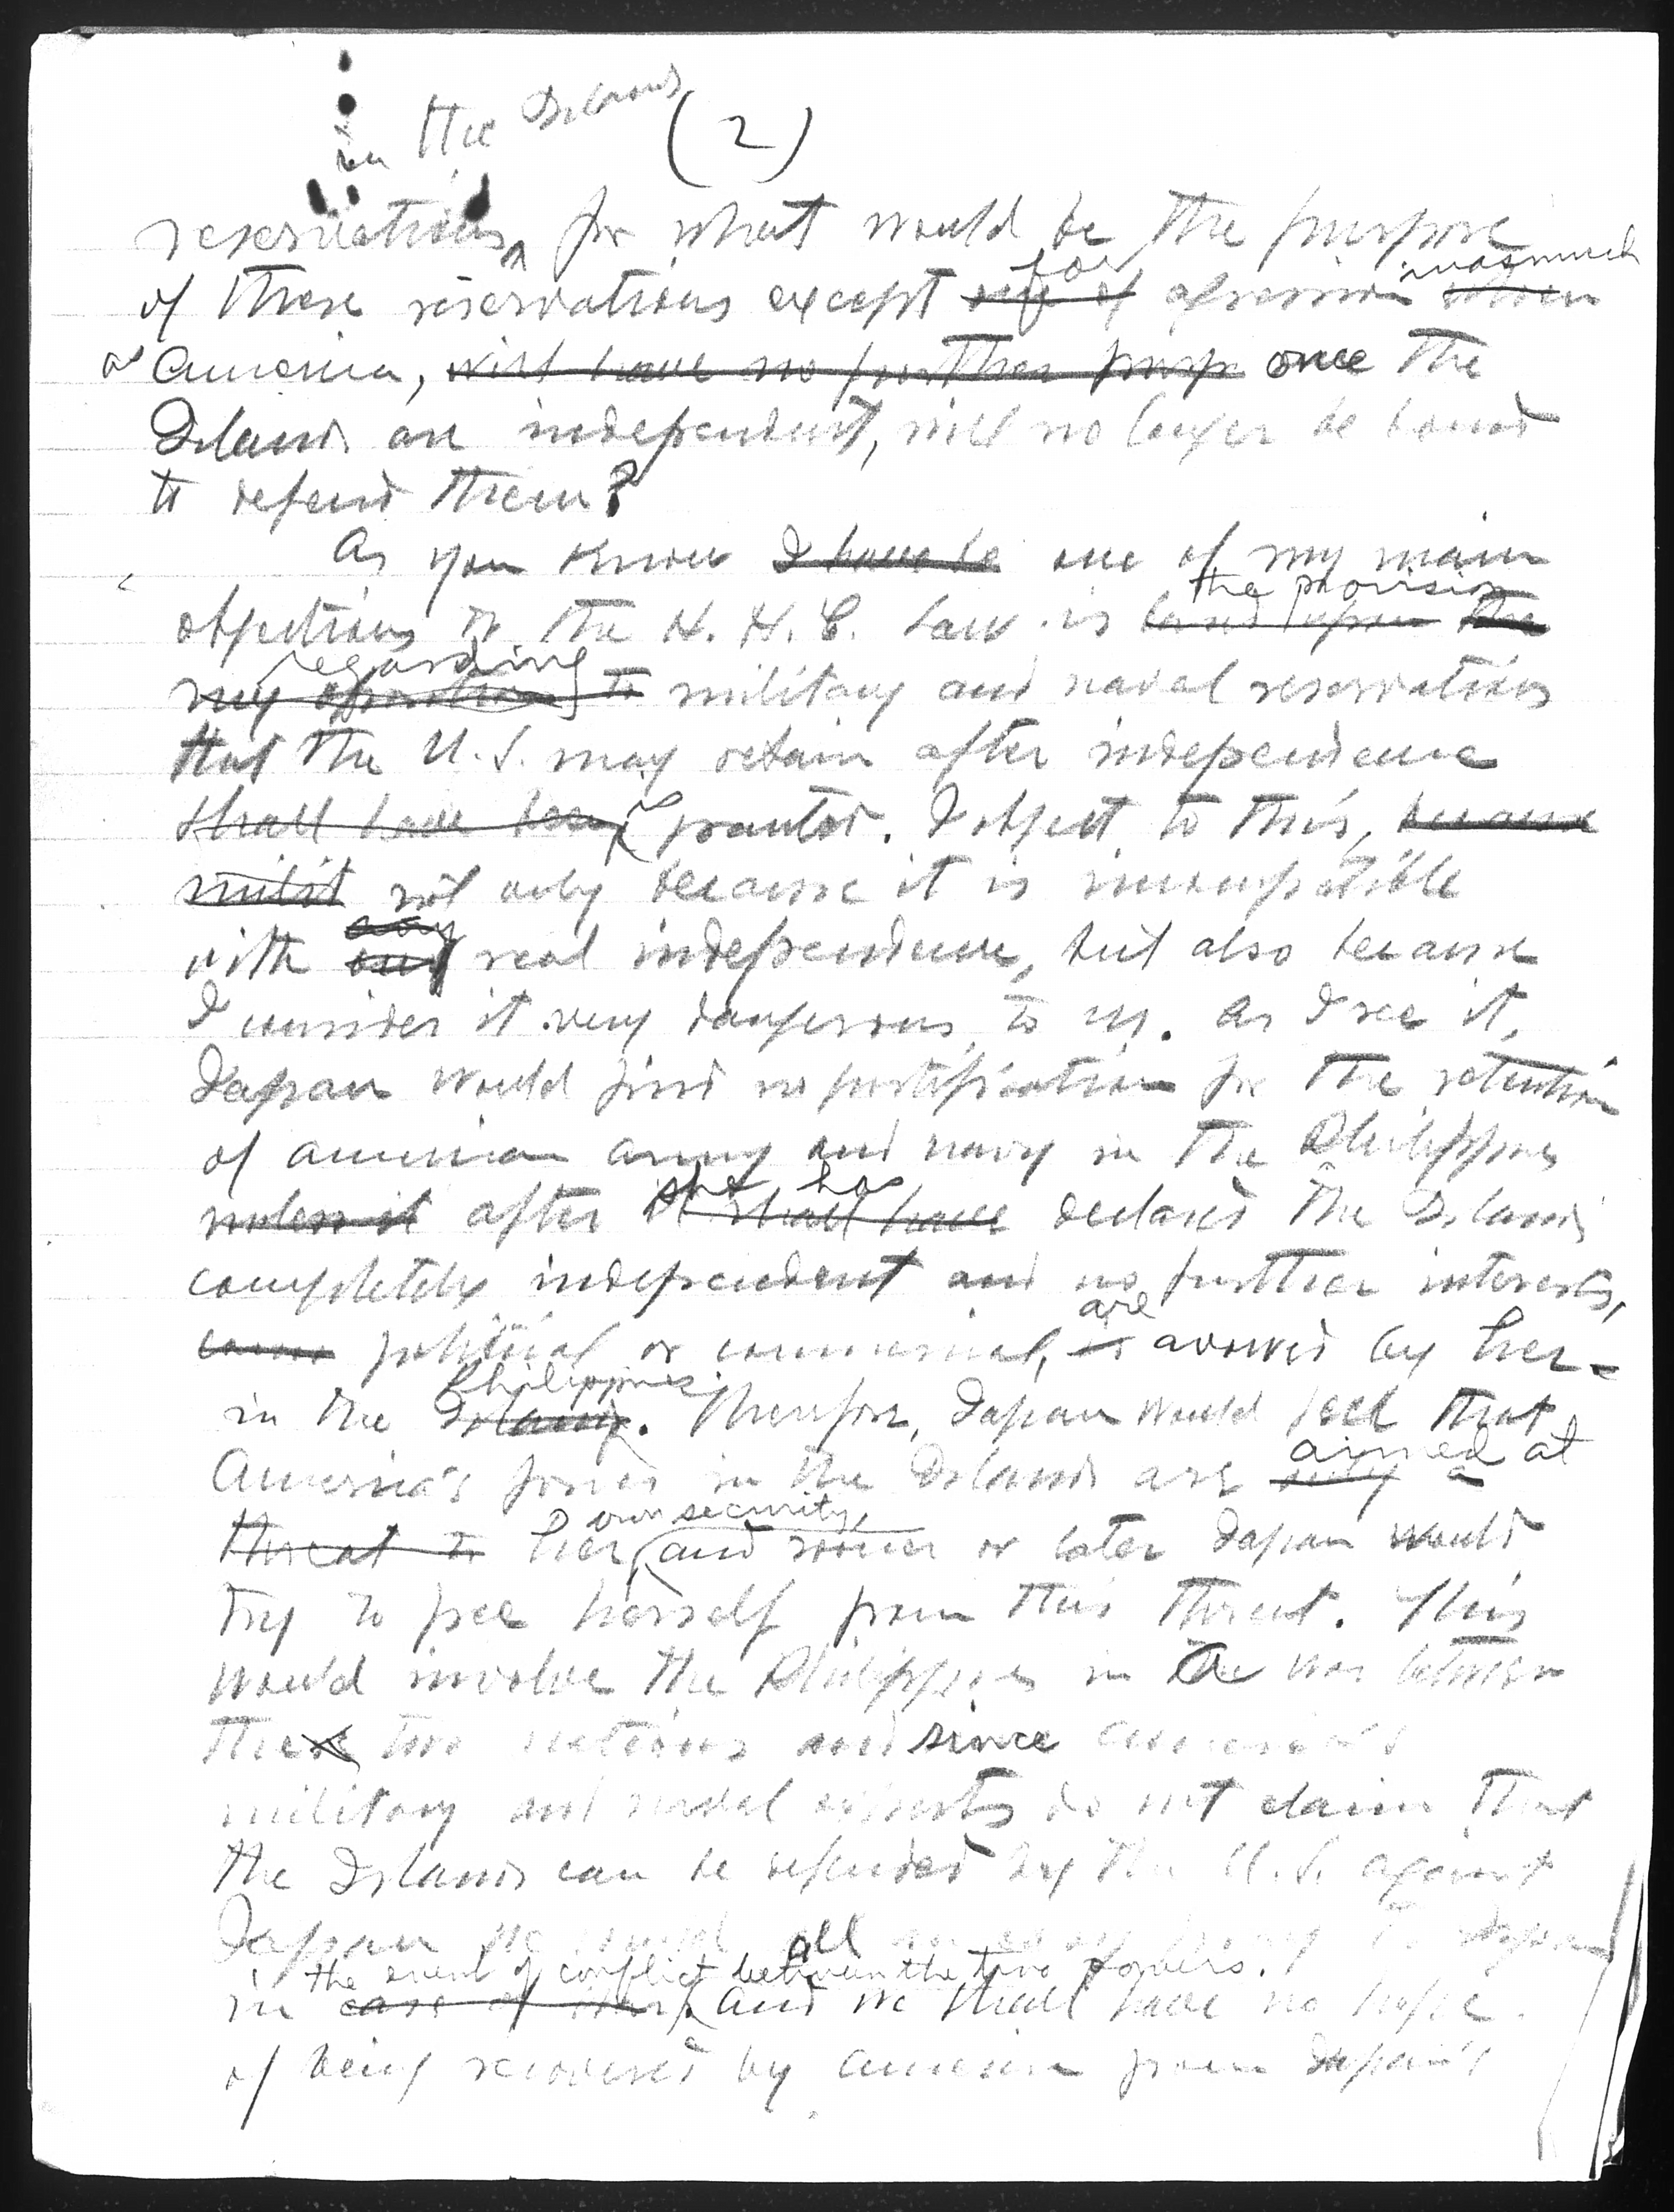 in the Islands
(2)
reservations, for what would be the purpose
for inasmuch
of these reservations except of agression when
as America, will have no further purp once the
Islands are independent, will no longer be bound
to defend them?
As you know I have be one of my main
the provision
objections to the H. H. C. Law is based upon the
regarding
my opposition to military and naval reservations
that the U.S. may retain after independence
shall have been granted. I object to this, because
milit not only because it is incompatible
any
with any real independence, but also because
I consider it very dangerous to us. As I see it,
Japan would find no justification for the retention
of American army and navy in the Philippines
she has
unless it after it shall have declared the Islands
completely independent and no further interests,
are
political or commercial, is avowed by her
Philippines
in the Islands. Therefore, Japan would feel that
aimed at
America's forces in the Islands are only a
own security,
threat to her, and sooner or later Japan would
try to free herself from this threat. This
would involve the Philippines in the war between
these two nations and since America's
military and naval experts do not claim that
the Islands can be defended by the U.S. against
Japan we would all Japan
the event of conflict between the two powers.
in case of war, and we shall have no hope
of being recovered by America from Japan's